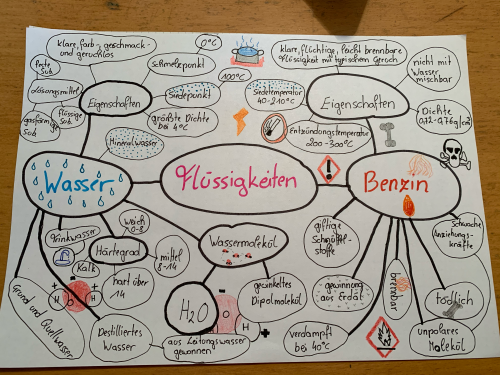 klare, farb-, geschmack-
und geruchlos
feste
Sub.
Lösungsmittel
gasförmige
Sub.
flüssige
Sub.
Eigenschaften
0°C
Schmelzpunkt
100°C
Siedepunkt
größte Dichte
bei 4°C
Mineralwasser
Wasser
Trinkwasser
Kalk
Härtegrad
weich
0-8
mittel
8-14
hart über
14
Grund und Quellwasser
Destilliertes
Wasser
aus Leitungswasser
gewonnen
Wassermolekül
H2O
gewinkeltes
Dipolmolekül
+ +
H O H
-
O
H
+
Flüssigkeiten
klare, flüchtige, leicht brennbare
Flüssigkeit mit typischem Geruch
nicht mit
Wasser
mischbar
Siedetemperatur
40-210°C
Eigenschaften
Dichte
0,72-0,76g/cm
Entzündungstemperatur
200-300°C
Benzin
giftige
Schnüffel-
stoffe
gewinnung
aus Erdöl
verdampft
bei 40°C
brennbar
schwache
Anziehungs-
kräfte
tödlich
unpolares
Molekül